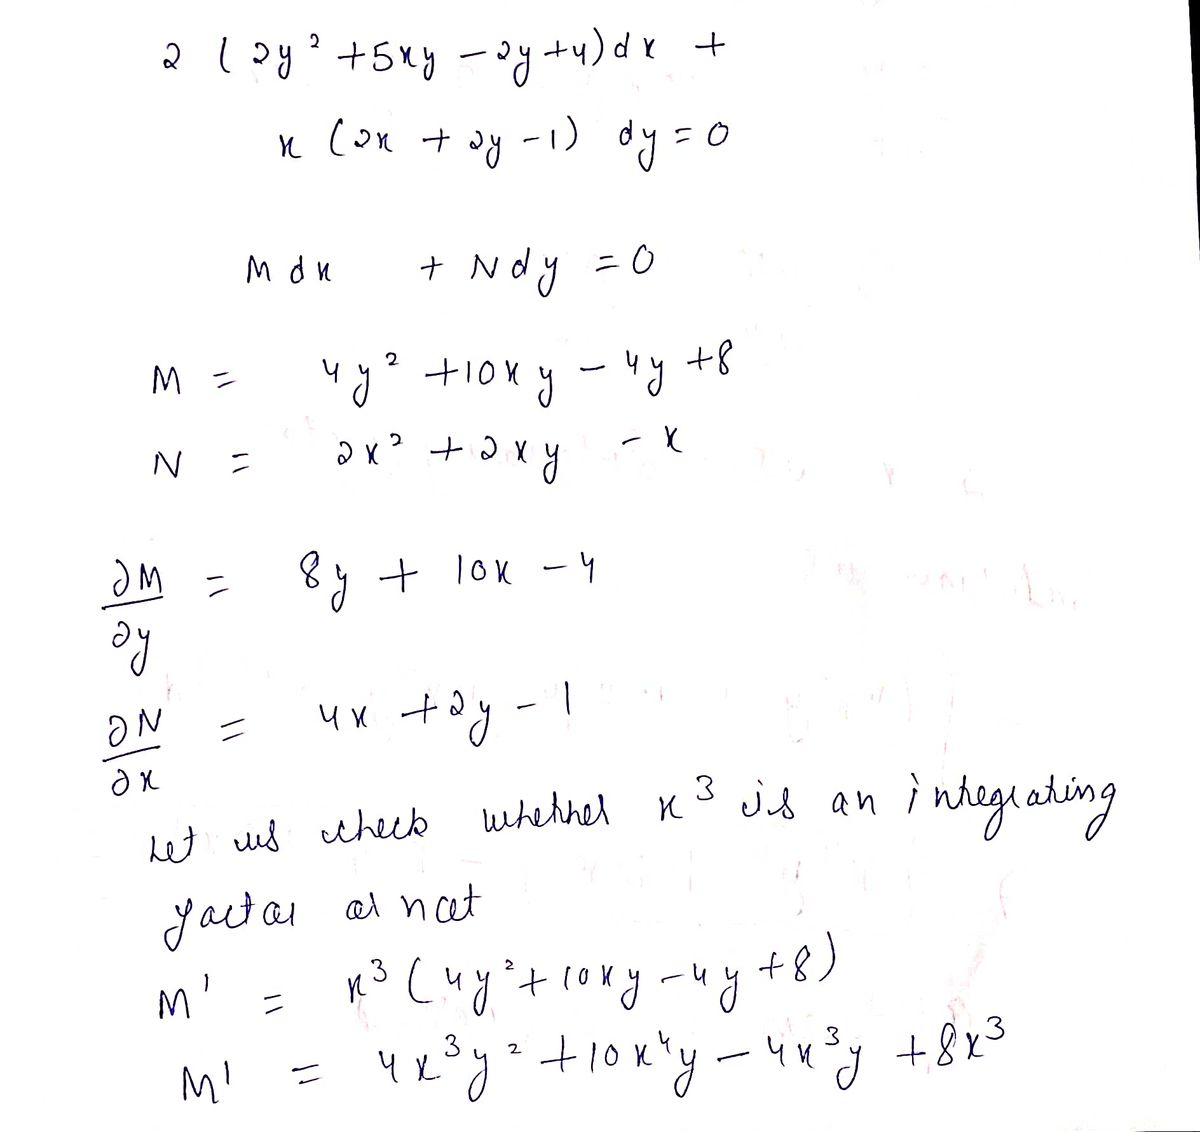 2 (2y² +5xy -2y+4)dx +
x (2x + 2y -1) dy = 0
M dx + N dy = 0
M = 4y² +10xy - 4y +8
N = 2x² +2xy - x
∂M/∂y = 8y + 10x - 4
∂N/∂x = 4x +2y - 1
Let us check whether x³ is an integrating
factor or not
M' = x³ (4y²+10xy -4y +8)
M' = 4x³y² +10x⁴y - 4x³y +8x³